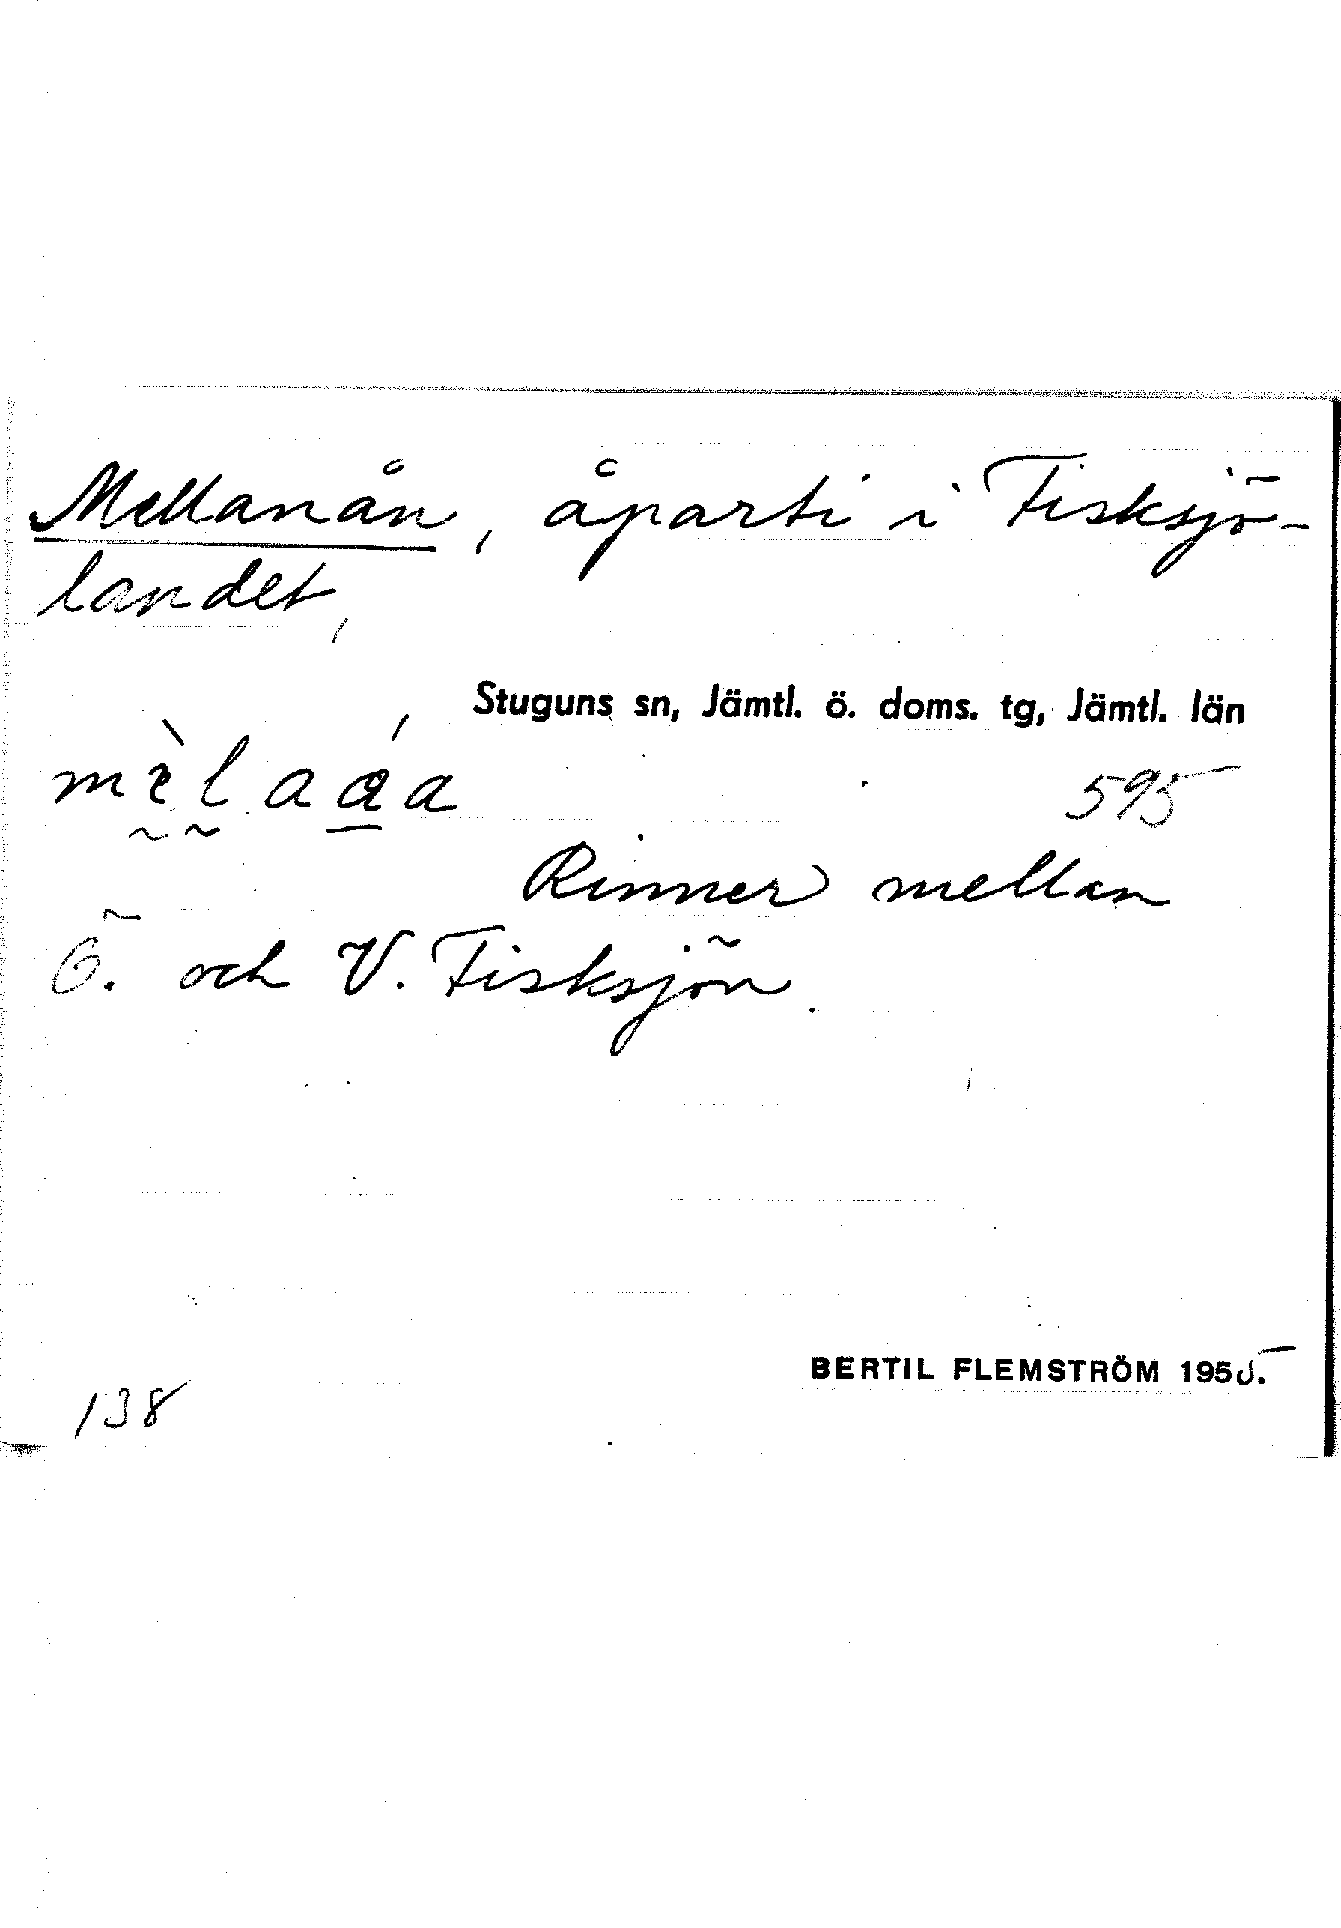 Mellanån, åparti i Fisksjö-
landet,
Stuguns sn, Jämtl. ö. doms. tg, Jämtl. län
595
Rinner mellan
Ö. och V. Fisksjön.
BERTIL FLEMSTRÖM 1955.
138